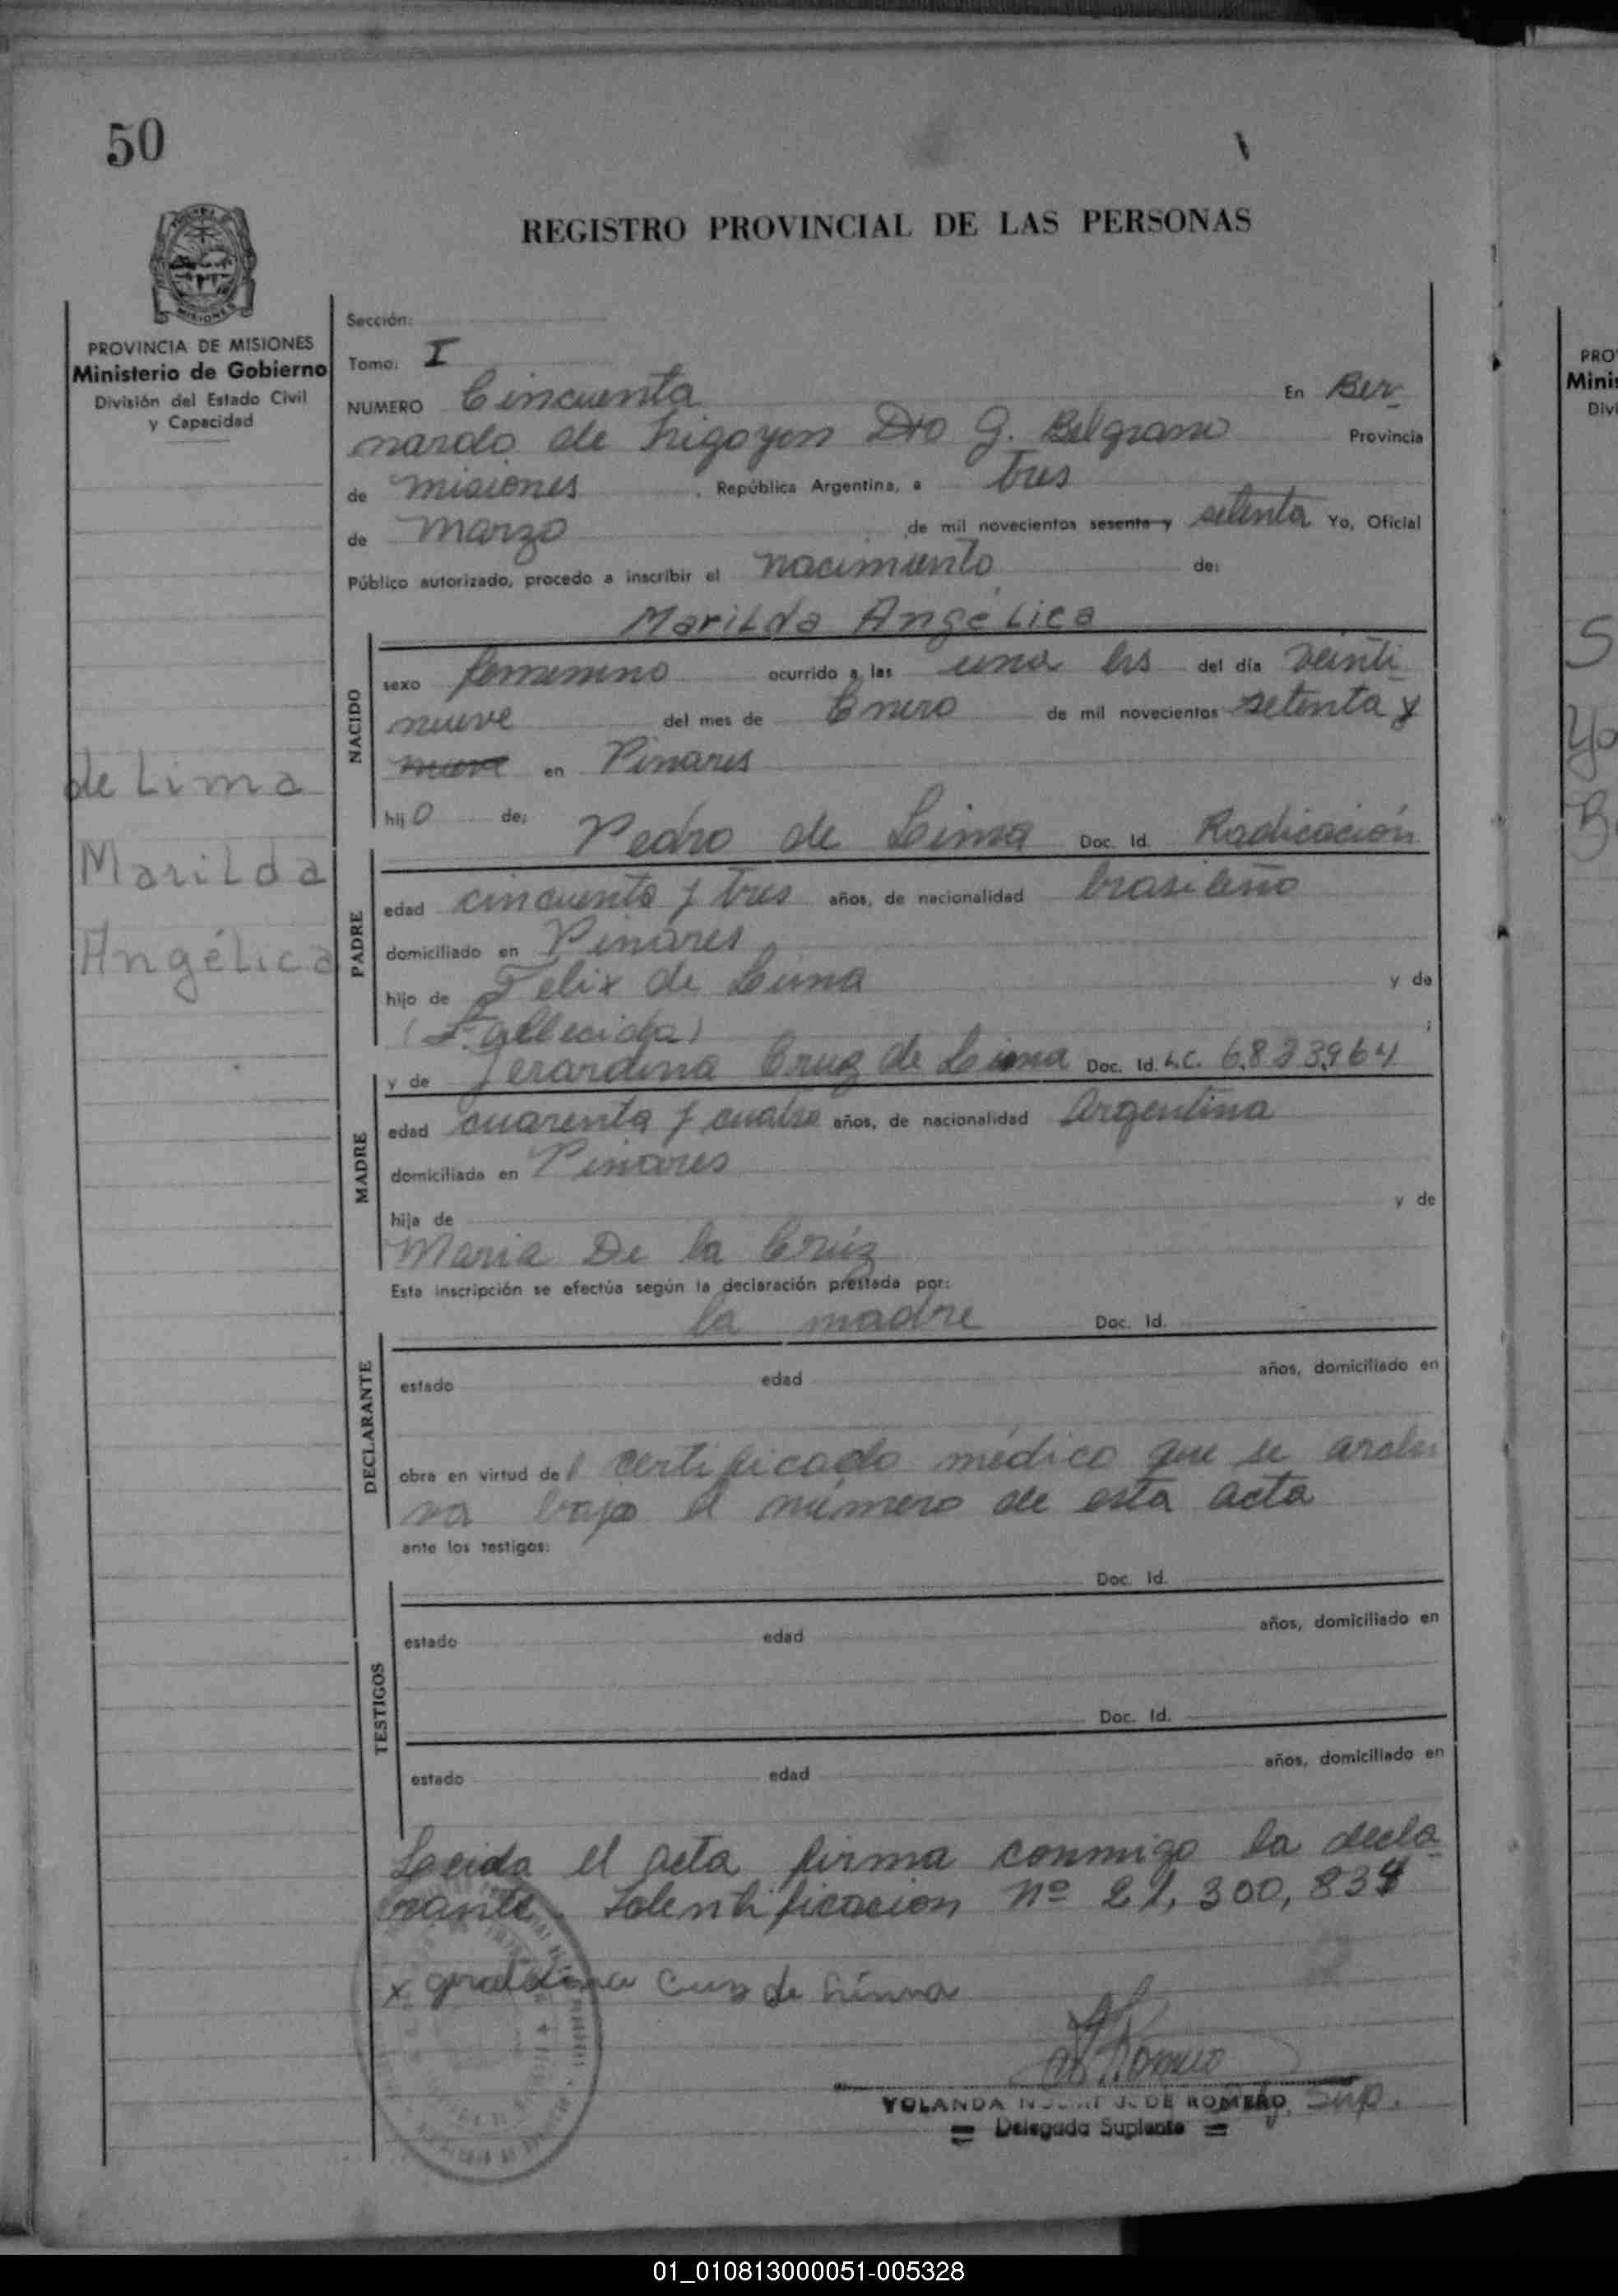 50
REGISTRO PROVINCIAL DE LAS PERSONAS
MISIONES
PROVINCIA DE MISIONES
Ministerio de Gobierno
División del Estado Civil
y Capacidad
de Lima
Marilda
Angélica
Sección:
Tomo: I
NUMERO Cincuenta En Ber-
nardo de Irigoyen Dto G. Belgrano Provincia
de Misiones República Argentina, a tres
de Marzo de mil novecientos sesenta y setenta Yo, Oficial
Público autorizado, procedo a inscribir el nacimiento de:
Marilda Angélica
NACIDO
sexo femenino ocurrido a las una hs del día veinti-
nueve del mes de Enero de mil novecientos setenta y
nueve en Pinares
hijo de: Pedro de Lima Doc. Id. Radicación
PADRE
edad cincuenta y tres años, de nacionalidad brasileño
domiciliado en Pinares
hijo de Felix de Lima y de
(Fallecida)
y de Jerardina Cruz de Lima Doc. Id. L.C. 6.823.964
MADRE
edad cuarenta y cuatro años, de nacionalidad Argentina
domiciliada en Pinares
hija de y de
Maria De la Crúz
Esta inscripción se efectúa según la declaración prestada por:
la madre Doc. Id.
DECLARANTE
estado edad años, domiciliado en
obra en virtud del certificado médico que se archi
va bajo el número de esta acta
ante los testigos:
Doc. Id.
TESTIGOS
estado edad años, domiciliado en
Doc. Id.
estado edad años, domiciliado en
Leida el acta firma conmigo la decla-
rante. Identificacion Nº 21,300,834
x Cruz de Lima
Romero
YOLANDA J. DE ROMERO Sup.
= Delegada Suplente =
PRO
Minis
Divi
01_010813000051-005328